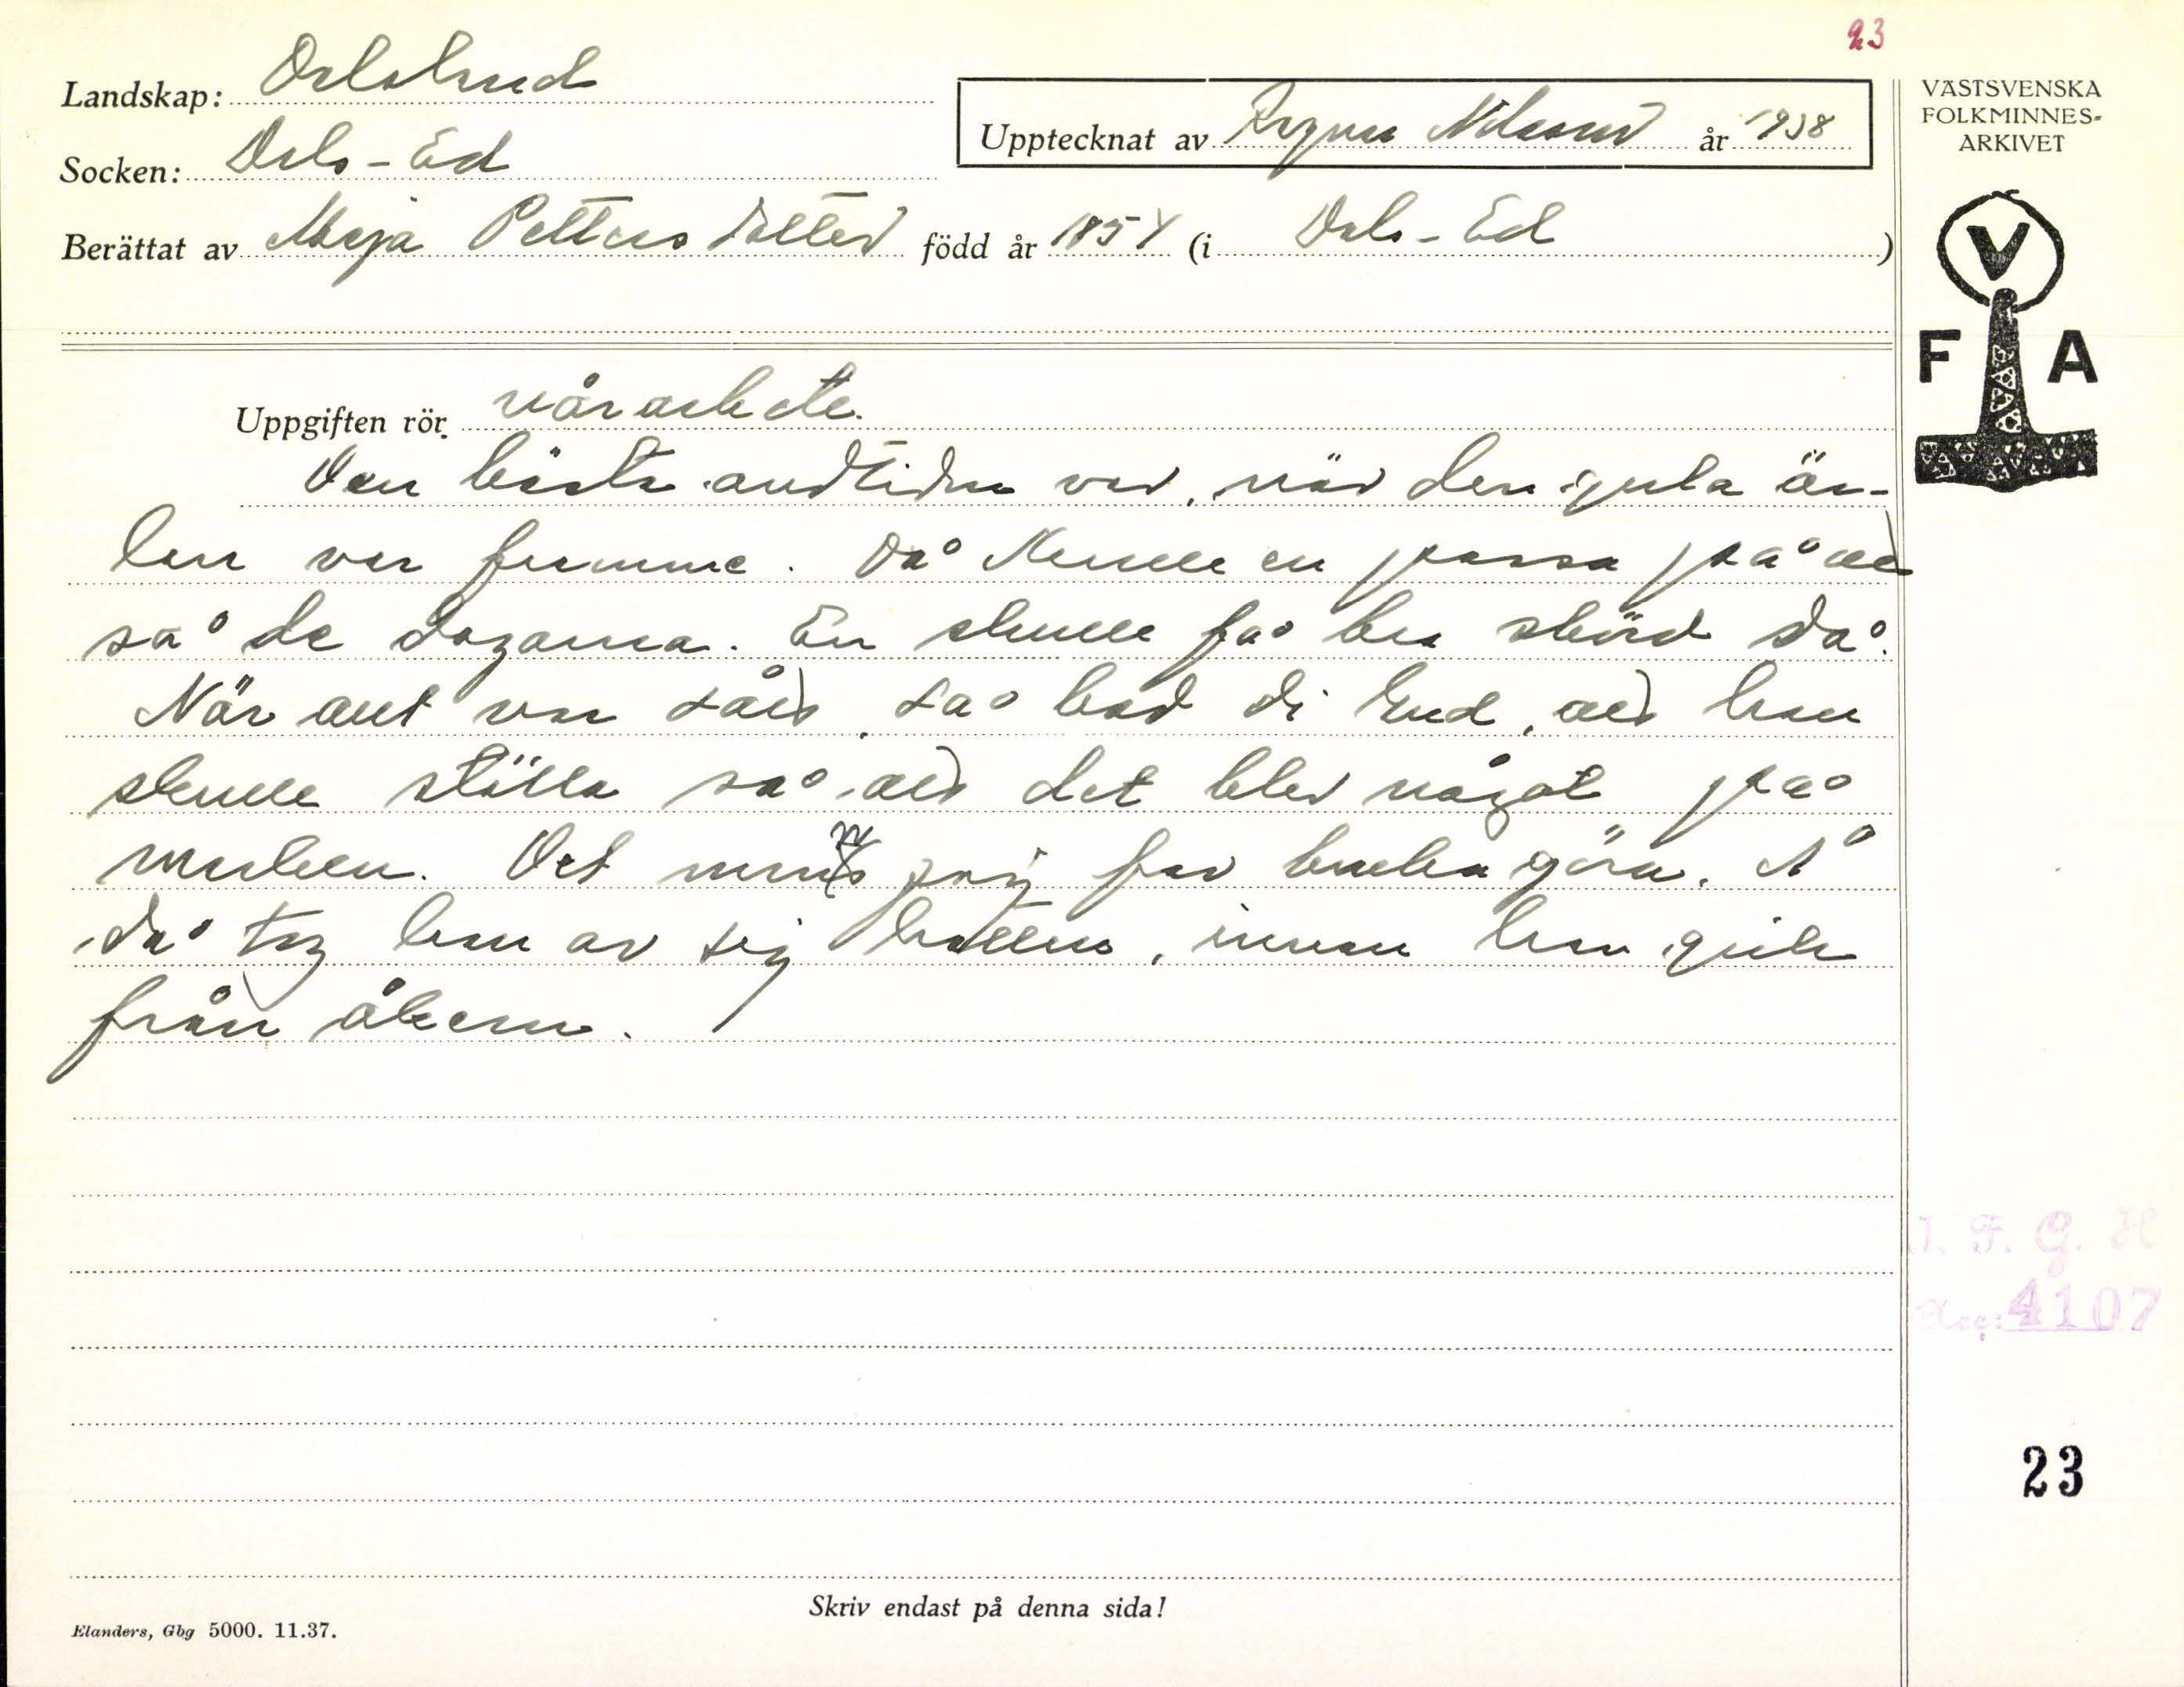 23
Landskap: Dalsland
Upptecknat av Ragnar Nilsson år 1938
VÄSTSVENSKA
FOLKMINNES-
ARKIVET
Socken: Dals-Ed
Berättat av Maja Petters dotter född år 1854 (i Dals-Ed)
V
F A
Uppgiften rör vårarbete.
Den bästa andtiden var, när den gula är-
lan var framme. Då skulle en passa på att
så de dagarna. En skulle få bra skörd då.
När allt var sått, så bad di Gud, att han
skulle ställa så att det blev något på
marken. Det minns jag far bruka göra. Å
då tog han av sig hatten, innan han gick
från åkern.
J. F. G. H
Acc: 4107
23
Skriv endast på denna sida!
Elanders, Gbg 5000. 11.37.